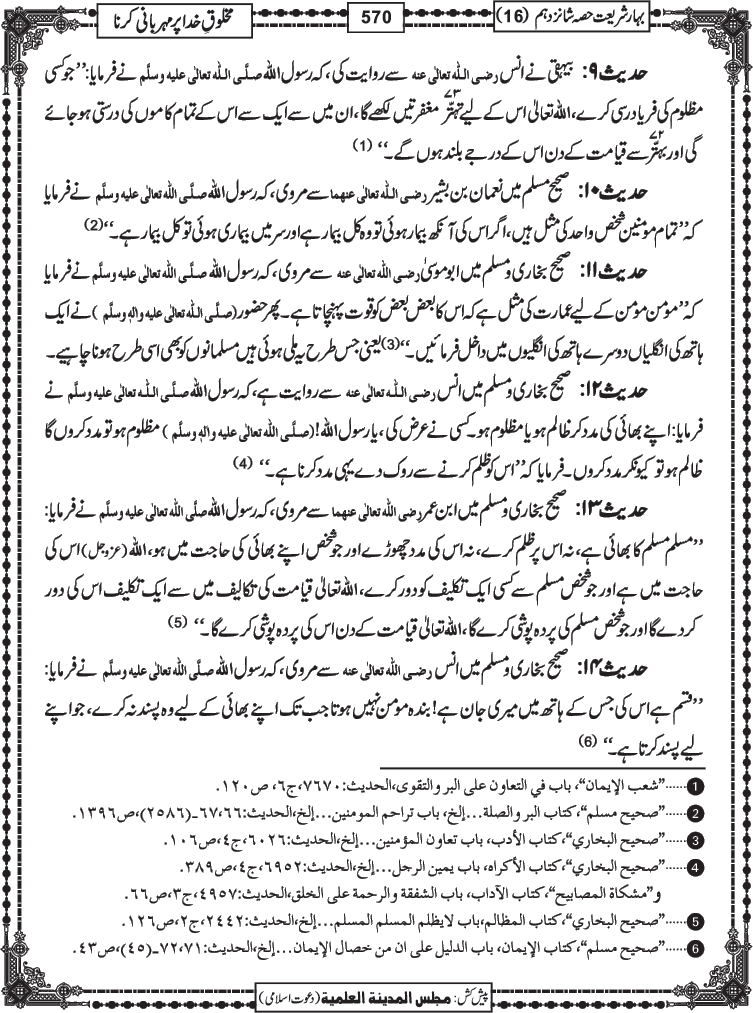 بہارِ شریعت حصہ شانزدہم (16)
570
مخلوقِ خدا پر مہربانی کرنا
حدیث ۹: بیہقی نے انس رضی اللہ تعالٰی عنہ سے روایت کی، کہ رسول اللہ صلَّی اللہ تعالٰی علیہ وسلَّم نے فرمایا: ’’جو کسی
مظلوم کی فریاد رسی کرے، اللہ تعالیٰ اس کے لیے تہتّر ۷۳ مغفرتیں لکھے گا، ان میں سے ایک سے اس کے تمام کاموں کی درستی ہوجائے
گی اور بہتّر ۷۲ سے قیامت کے دن اس کے درجے بلند ہوں گے۔‘‘ (1)
حدیث ۱۰: صحیح مسلم میں نعمان بن بشیر رضی اللہ تعالٰی عنہما سے مروی، کہ رسول اللہ صلَّی اللہ تعالٰی علیہ وسلَّم نے فرمایا
کہ ’’تمام مومنین شخص واحد کی مثل ہیں، اگر اس کی آنکھ بیمار ہوئی تو وہ کل بیمار ہے اور سر میں بیماری ہوئی تو کل بیمار ہے۔‘‘(2)
حدیث ۱۱: صحیح بخاری و مسلم میں ابوموسیٰ رضی اللہ تعالٰی عنہ سے مروی، کہ رسول اللہ صلَّی اللہ تعالٰی علیہ وسلَّم نے فرمایا
کہ ’’مومن مومن کے لیے عمارت کی مثل ہے کہ اس کا بعض بعض کو قوت پہنچاتا ہے۔ پھر حضور (صلَّی اللہ تعالٰی علیہ واٰلہٖ وسلَّم) نے ایک
ہاتھ کی انگلیاں دوسرے ہاتھ کی انگلیوں میں داخل فرمائیں۔‘‘(3) یعنی جس طرح یہ ملی ہوئی ہیں مسلمانوں کو بھی اسی طرح ہونا چاہیے۔
حدیث ۱۲: صحیح بخاری و مسلم میں انس رضی اللہ تعالٰی عنہ سے روایت ہے، کہ رسول اللہ صلَّی اللہ تعالٰی علیہ وسلَّم نے
فرمایا: اپنے بھائی کی مدد کر ظالم ہو یا مظلوم ہو۔ کسی نے عرض کی، یارسول اللہ! (صلَّی اللہ تعالٰی علیہ واٰلہٖ وسلَّم) مظلوم ہو تو مدد کروں گا
ظالم ہو تو کیونکر مدد کروں۔ فرمایا کہ ’’اس کو ظلم کرنے سے روک دے یہی مدد کرنا ہے۔‘‘ (4)
حدیث ۱۳: صحیح بخاری و مسلم میں ابن عمر رضی اللہ تعالٰی عنہما سے مروی، کہ رسول اللہ صلَّی اللہ تعالٰی علیہ وسلَّم نے فرمایا:
’’مسلم مسلم کا بھائی ہے، نہ اس پر ظلم کرے، نہ اس کی مدد چھوڑے اور جو شخص اپنے بھائی کی حاجت میں ہو، اللہ (عزوجل) اس کی
حاجت میں ہے اور جو شخص مسلم سے کسی ایک تکلیف کو دور کرے، اللہ تعالیٰ قیامت کی تکالیف میں سے ایک تکلیف اس کی دور
کردے گا اور جو شخص مسلم کی پردہ پوشی کرے گا، اللہ تعالیٰ قیامت کے دن اس کی پردہ پوشی کرے گا۔‘‘ (5)
حدیث ۱۴: صحیح بخاری و مسلم میں انس رضی اللہ تعالٰی عنہ سے مروی، کہ رسول اللہ صلَّی اللہ تعالٰی علیہ وسلَّم نے فرمایا:
’’قسم ہے اس کی جس کے ہاتھ میں میری جان ہے! بندہ مومن نہیں ہوتا جب تک اپنے بھائی کے لیے وہ پسند نہ کرے، جو اپنے
لیے پسند کرتا ہے۔‘‘ (6)
1 ......”شعب الإیمان“، باب في التعاون علی البر والتقوی، الحدیث: ٧٦٧٠، ج٦، ص ١٢٠.
2 ......”صحیح مسلم“، کتاب البر والصلة...إلخ، باب تراحم المومنین...إلخ، الحدیث: ٦٧،٦٦ـ(٢٥٨٦)، ص١٣٩٦.
3 ......”صحیح البخاري“، کتاب الأدب، باب تعاون المؤمنین...إلخ، الحدیث: ٦٠٢٦، ج٤، ص١٠٦.
4 ......”صحیح البخاري“، کتاب الأکراہ، باب یمین الرجل...إلخ، الحدیث: ٦٩٥٢، ج٤، ص٣٨٩.
و”مشکاة المصابیح“، کتاب الآداب، باب الشفقة والرحمة علی الخلق، الحدیث: ٤٩٥٧، ج٣، ص٦٦.
5 ......”صحیح البخاري“، کتاب المظالم، باب لایظلم المسلم المسلم...إلخ، الحدیث: ٢٤٤٢، ج٢، ص١٢٦.
6 ......”صحیح مسلم“، کتاب الإیمان، باب الدلیل علی ان من خصال الإیمان...إلخ، الحدیث: ٧٢،٧١ـ(٤٥)، ص٤٣.
پیش کش: مجلس المدینة العلمیة (دعوتِ اسلامی)